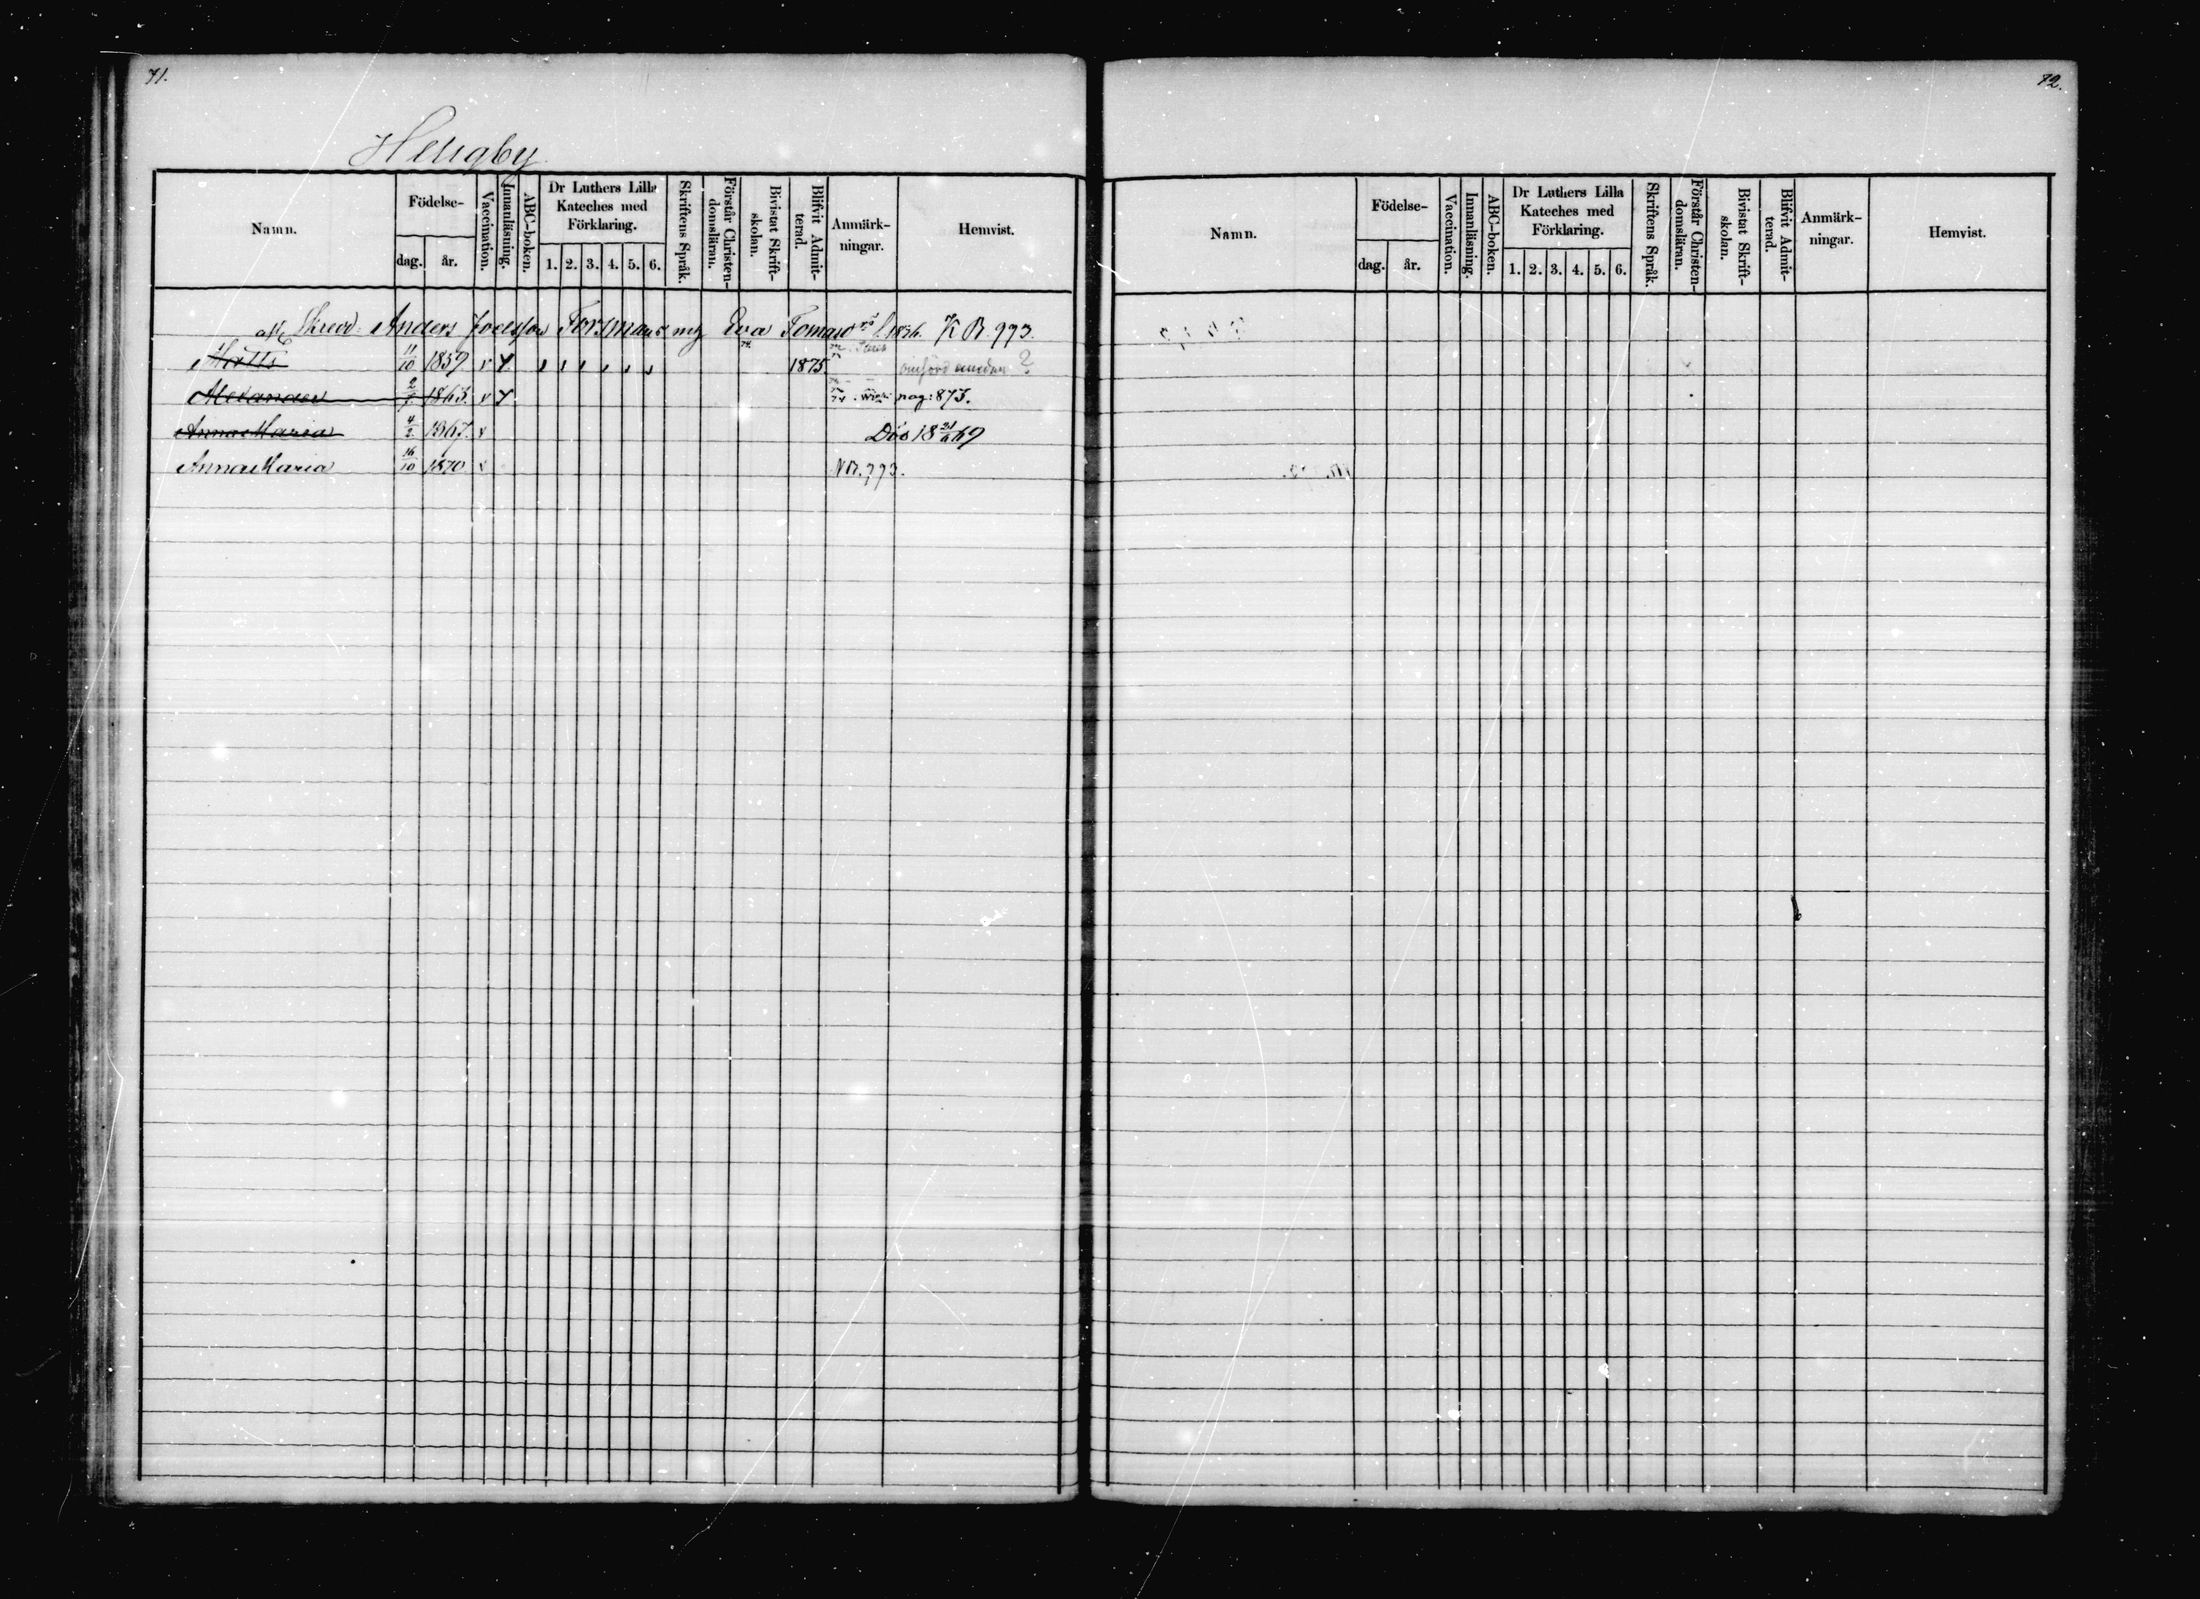 71.
Heligby
Namn. Födelse- dag. år. Vaccination. Innanläsning. ABC-boken. Dr Luthers Lilla Kateches med Förklaring. 1. 2. 3. 4. 5. 6. Skriftens Språk. Förstår Christen-domsläran. Bivistat Skrift-skolan. Blifvit Admit-terad. Anmärk-ningar. Hemvist.
Skredd. Anders Joelsson Forsman o Eva Tomasd 1836. K B. 993.
Matts 11/10 1859 v Y 1875 ?
Alexander 2/7 1863. v Y pag: 873.
Anna Maria 4/2 1867. v Död 18 69
Anna Maria 16/10 1870 v
72.
Namn. Födelse- dag. år. Vaccination. Innanläsning. ABC-boken. Dr Luthers Lilla Kateches med Förklaring. 1. 2. 3. 4. 5. 6. Skriftens Språk. Förstår Christen-domsläran. Bivistat Skrift-skolan. Blifvit Admit-terad. Anmärk-ningar. Hemvist.